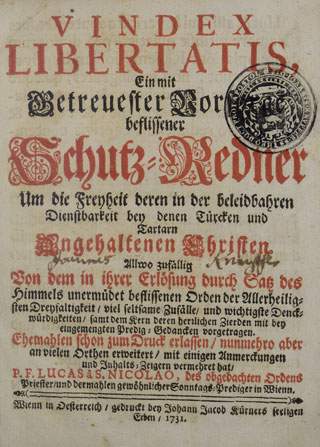 VINDEX
LIBERTATIS,
Ein mit
Getreuester Vor-
beflissener
Schutz-Redner
Um die Freyheit deren in der beleidbahren
Dienstbarkeit bey denen Türcken und
Tartarn
Angehaltenen Christen.
Allwo zufällig
Von dem in ihrer Erlösung durch Satz des
Himmels unermüdet beflissenen Orden der Allerheilig-
sten Dreyfaltigkeit / viel seltsame Zufälle / und wichtigste Denck-
würdigkeiten / samt dem Kern deren herrlichen Zierden mit bey
eingemengten Predig-Gedancken vorgetragen.
Ehemahlen schon zum Druck erlassen / nunmehro aber
an vielen Orthen erweitert / mit einigen Anmerckungen
und Inhalts-Zeigern vermehret hat /
P. F. LUCAS à S. NICOLAO, des obgedachten Ordens
Priester / und dermahlen gewöhnlicher Sonntags-Prediger in Wienn.
Wienn in Oesterreich / gedruckt bey Johann Jacob Kürners seeligen
Erben / 1731.